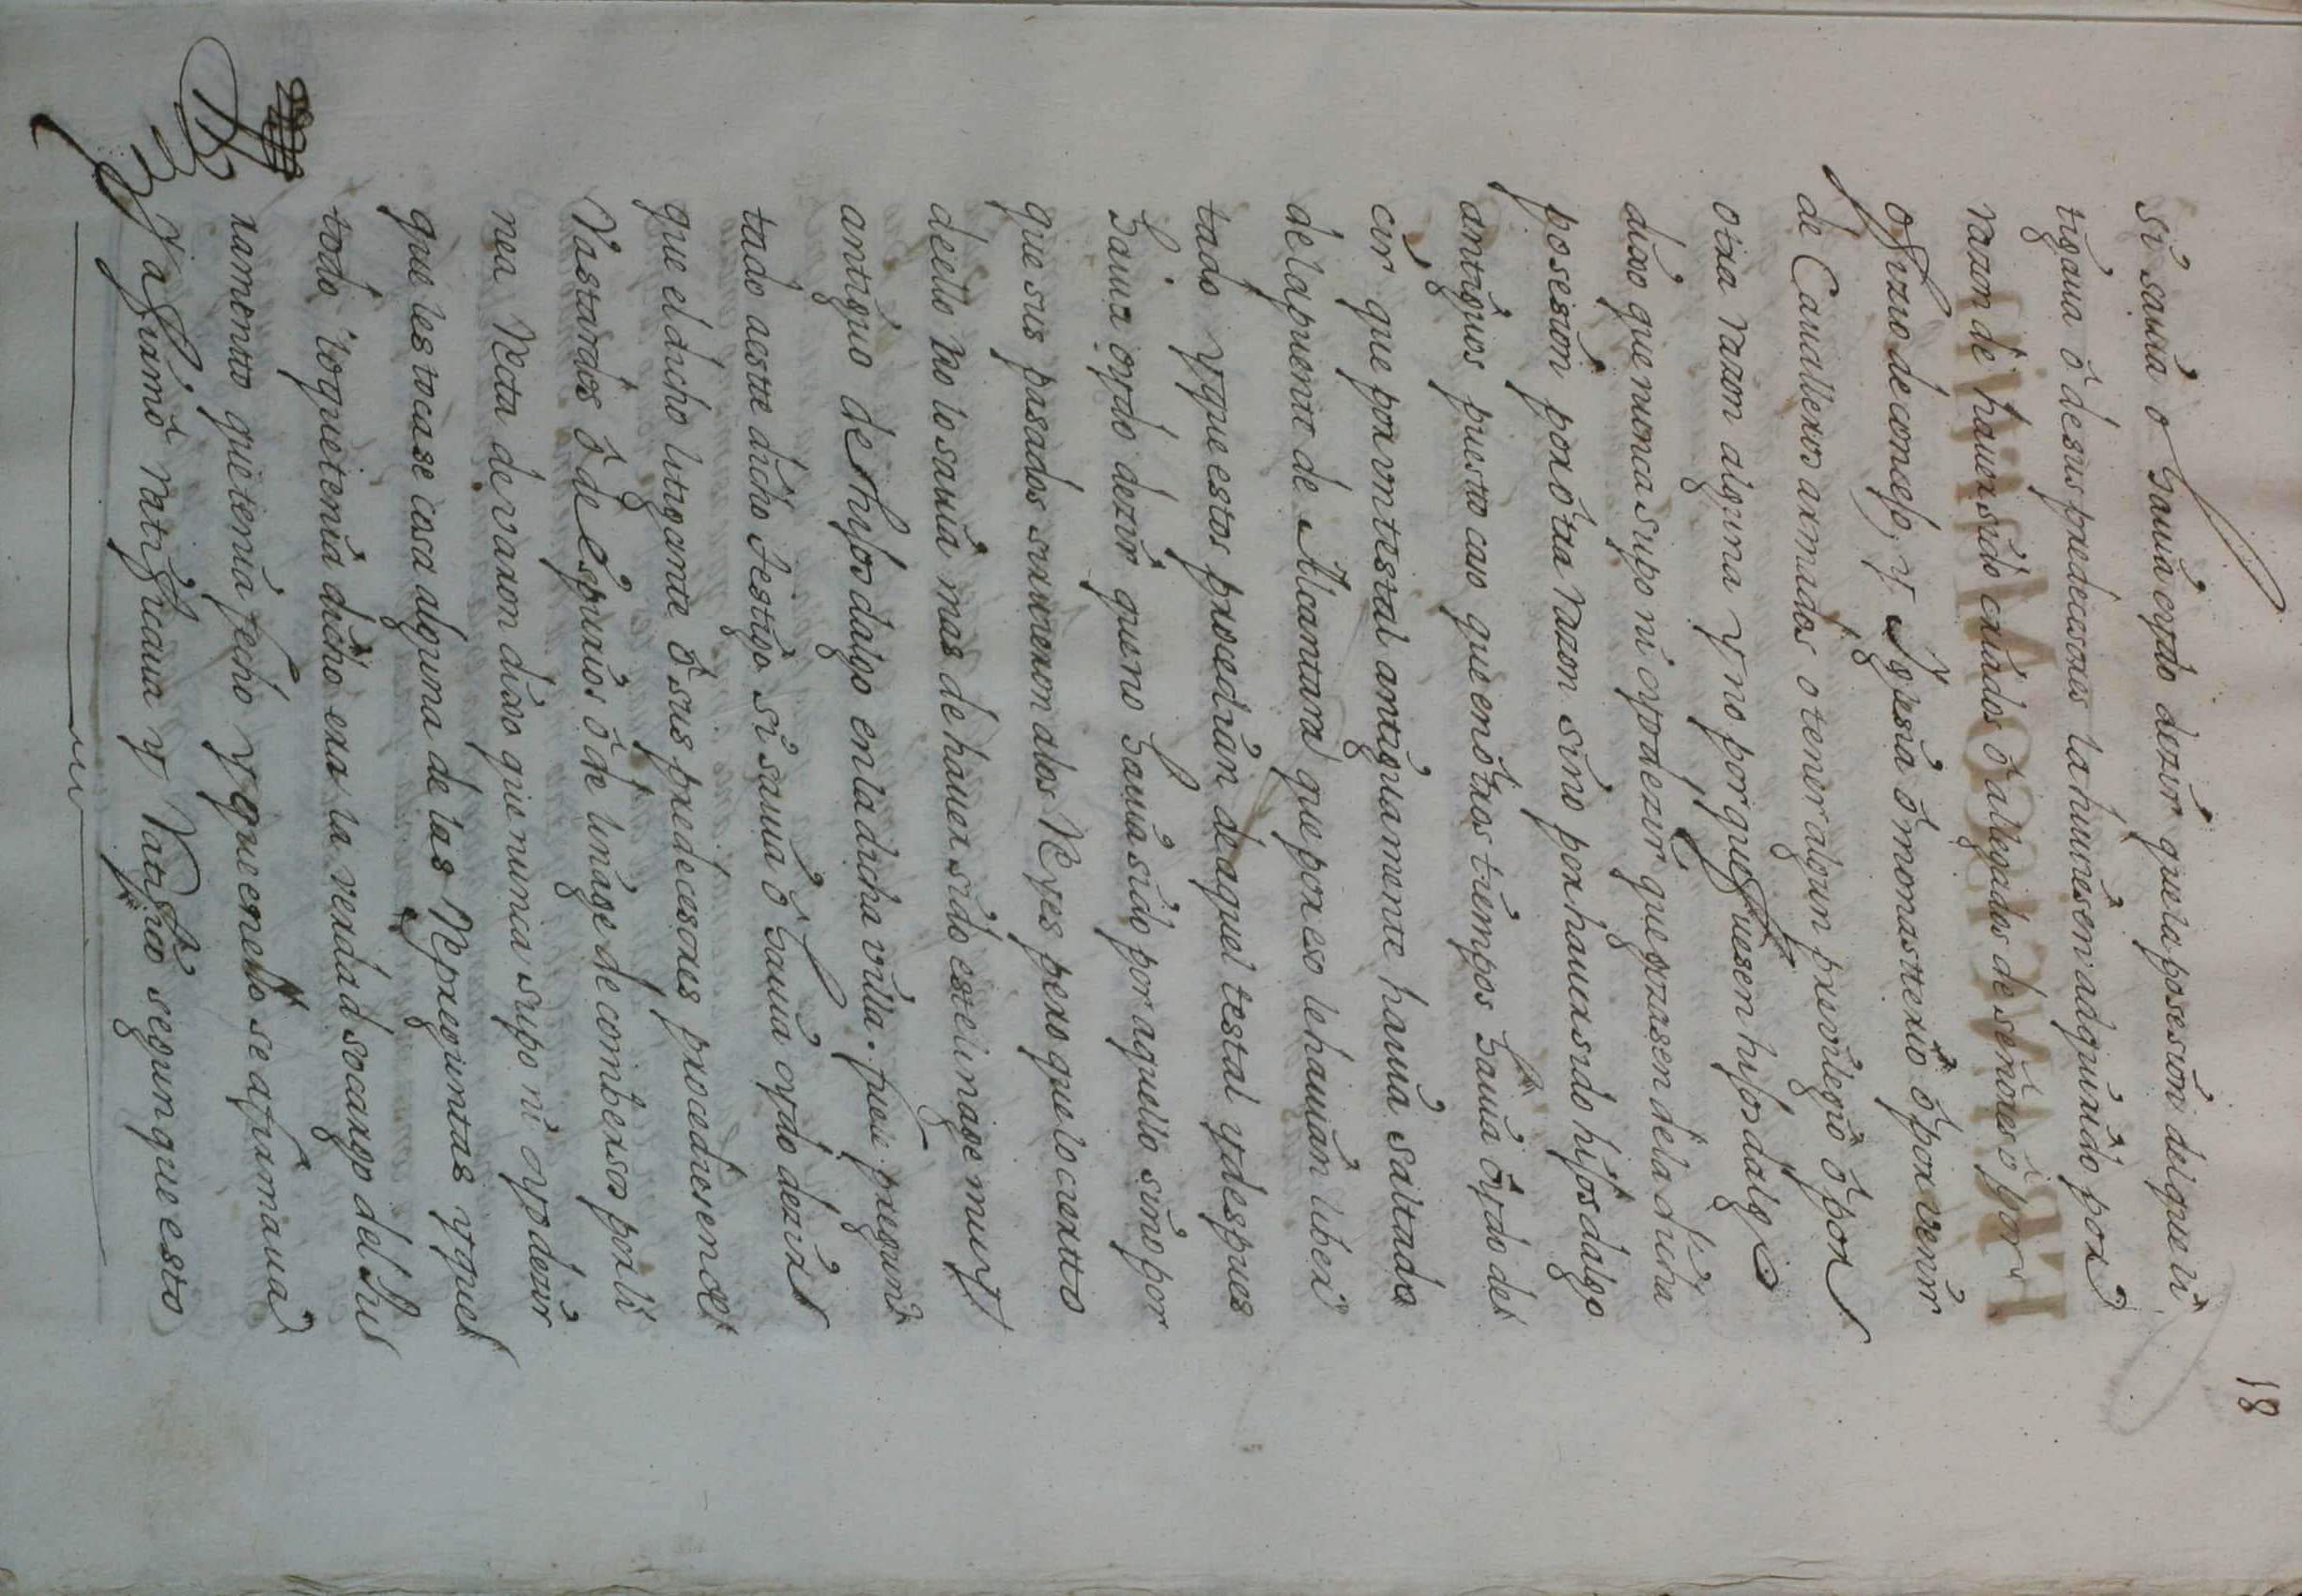 18
si sauia o hauia oydo dezir que la posesion del que li
tigaua ô de sus predecesores la huuiesen adquirido por
razon de hauer sido criados ô allegados de señores ô por
ofizio de concejo, y Yglesia ô monasterio ô por venir
de Cauallexos armados o tener algun preuilegio ô por
otra razon alguna y no por que fuesen hijos dalgo
dixo que nunca supo ni oyo dezir que gozasen de la dicha
posesion por ôtra razon sino por hauer sido hijos dalgo
antiguos puesto caso que en ôtros tiempos hauia ôydo de
cir que por un tal antiguamente hauia saltado
de la puente de Alcantara que por eso le hauian liber
tado y que estos procedian de aquel tal y despues
hauia oydo dezir que no hauia sido por aquello sino por
que sus pasados siruieron a los Reyes pero que lo cierto
de ello no lo sauia mas de hauer sido este linage muy
antiguo de hijos dalgo en la dicha villa. fuele pregun
tado a este dicho testigo si sauia ô hauia oydo dezir
que el dicho litigante ô sus predecesores procediesen de
Vastardos ô de Espurios ô de linage de combersos por li
nea Recta de varon dixo que nunca supo ni oyo dezir
que les tocase cosa alguna de las Repreguntas y que
todo lo que tenia dicho era la verdad so cargo del Ju
ramento que tenia fecho y que en ello se afirmaua
y afirmô ratificaua y Ratificô segun que esto